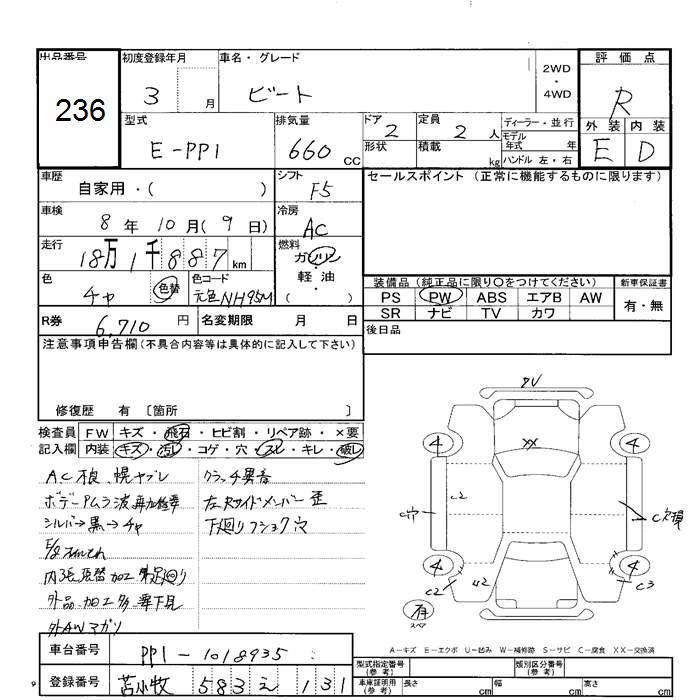 出品番号 初度登録年月 車名・グレード 評価点
236
3 月 ビート
2WD
・
4WD
R
型式 排気量 ドア 定員 ディーラー・並行 外装 内装
E-PP1 660 CC 2 2 人 モデル年式 年 E D
形状 積載 kg ハンドル 左・右
車歴 シフト セールスポイント (正常に機能するものに限ります)
自家用・( ) F5
車検 冷房
8 年 10 月(9 日) AC
走行 燃料
18万1千887 km ガソリン
軽油
( )
色 色替 色コード
チャ 元色NH95M
装備品 (純正品に限り○をつけてください) 新車保証書
PS PW ABS エアB AW 有・無
SR ナビ TV カワ
R券 6,710 円 名変期限 月 日 後日品
注意事項申告欄(不具合内容等は具体的に記入して下さい)
修復歴 有 〔箇所 〕
検査員 FW キズ・飛石・ヒビ割・リペア跡・×要
記入欄 内装 キズ・汚レ・コゲ・穴・スレ・キレ・破レ
AC根、幌ヤブレ クラッチ異音
シルバー→黒→チャ 下廻りフショク穴
外AWマガリ
車台番号 PP1-1018935
登録番号 苫小牧 583 え 131
4 4 4 4
XX
C2
C穴
C欠損
C2
U2
C3
有
スペア
A-キズ E-エクボ U-凹み W-補修跡 S-サビ C-腐食 XX-交換済
型式指定番号(参考) 類別区分番号(参考)
車庫証明用(参考) 長さ cm 幅 cm 高さ cm